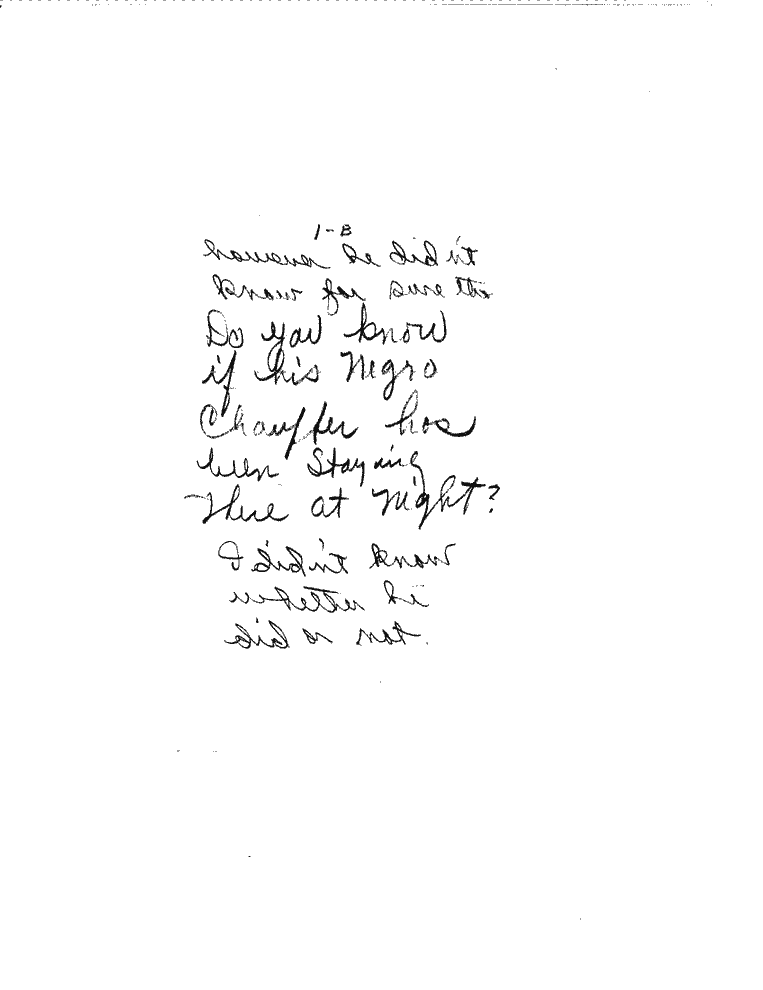 1-B
however he didn't
know for sure tho
Do you know
if his Negro
Chauffer has
been Staying
There at Night?
I didn't know
whether he
did or not.